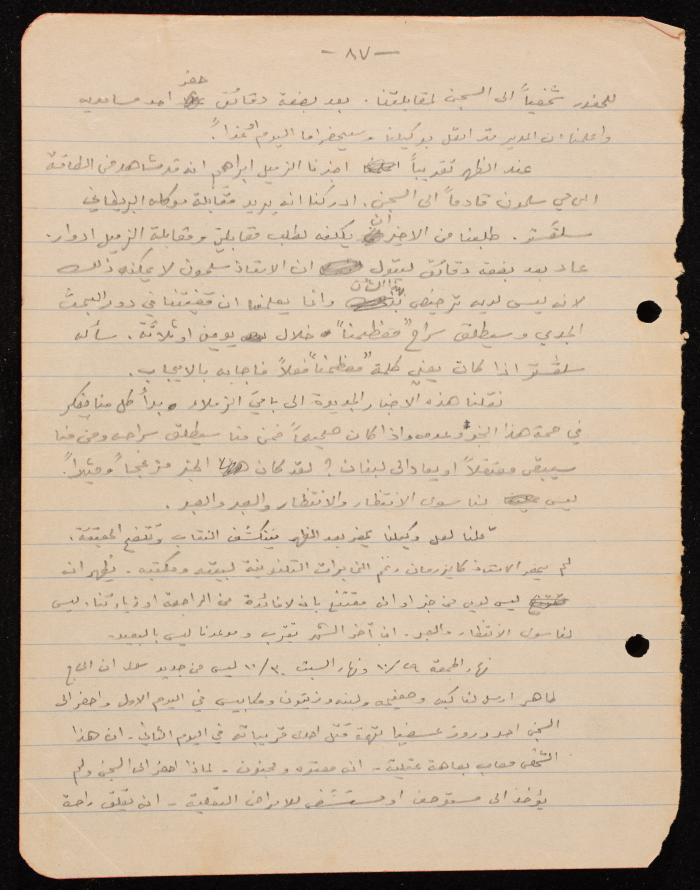 — ٨٧ —
للحضور شخصياً الى السجن لمقابلتنا. بعد بضعة دقائق حضر احد مساعديه
واعلمنا ان المدير قد اتصل بوكيلنا وسيحضر اما اليوم او غداً.
عند الظهر تقريباً اخبرنا الزميل ابراهيم انه قد شاهد من الطاقة
سلمون قادماً الى السجن. ادركنا انه يريد مقابلة موكله البريطاني
سلفستر. طلبنا من الاخير ان يكلفه لطلب مقابلتي ومقابلة الزميل ادوار.
عاد بعد بضعة دقائق ليقول ان الاستاذ سلمون لا يمكنه ذلك
لانه ليس لديه ترخيص بهذا الشأن وانما يعلمنا ان قضيتنا في دور البحث
الجدي وسيطلق سراح "معظمنا" خلال يومين او ثلاثة. سأله
سلفستر اذا كان يعني كلمة "معظمنا" فعلاً فاجابه بالايجاب.
نقلنا هذه الاخبار الجديدة الى باقي الزملاء وبدأ كل منا يفكر
في صحة هذا الخبر وعدمه واذا كان صحيحاً فمن منا سيطلق سراحه ومن منا
سيبقى معتقلاً او يعاد الى لبنان؟ لقد كان هذا الخبر مزعجاً ومثيراً.
ليس لنا سوى الانتظار والانتظار والصبر والصبر.
قلنا لعل وكيلنا يحضر بعد الظهر فينكشف النقاب وتتضح الحقيقة.
لم يحضر الاستاذ كايزرمان رغم المخابرات التلفونية لبيته ومكتبه. يظهر انه
ليس لديه من خبر او انه مقتنع بان لا فائدة من المراجعة او زيارتنا. ليس
لنا سوى الانتظار والصبر. ان آخر الشهر تقرب وموعدنا ليس بالبعيد.
نهار الجمعة ١٠/٢٩ ونهار السبت ١٠/٣٠ ليس من جديد سوى ان الحاج
طاهر ارسل لنا كبه وصفيحه ولبنه وزيتون ومكابيس في اليوم الاول واحضر الى
السجن احد دروز عسفيا بتهمة قتل احدى قريباته في اليوم الثاني - ان هذا
الشخص مصاب بعاهة عقلية - انه معتوه ومجنون - لماذا احضر الى السجن ولم
يؤخذ الى مستوصف او مستشفى للامراض العقلية - انه يقلق راحة